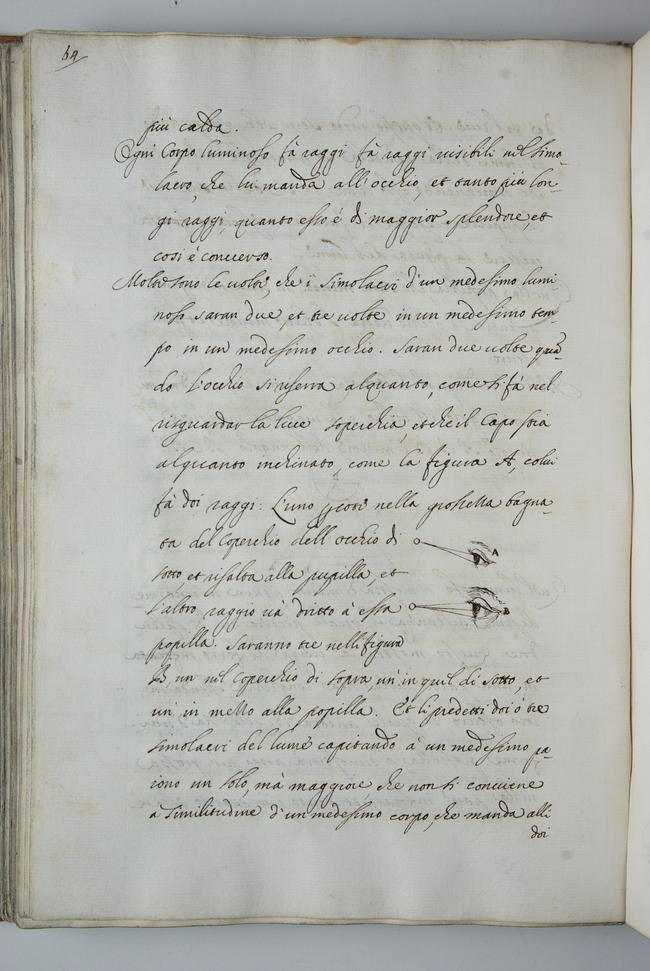 64
più calda.
Ogni Corpo luminoso fà raggi fà raggi visibili nel simo-
lacro, che lui manda all'occhio, et tanto più lon-
gi raggi, quanto esso é di maggior splendore, et
cosi é converso.
Molte sono le volte, che i simolacri d'un medesimo lumi
noso saran due, et tre volte in un medesimo tem-
po in un medesimo occhio. Saran due volte quā
do l'occhio si riserra alquanto, come si fà nel
risguardar la luce soperchia, et che il capo stia
alquanto inchinato, come la figura A, colui
fà doi raggi: L'uno nella grossetta bagna-
ta del coperchio dell'occhio di
sotto, et risalta alla pupilla, et
l'altro raggio và dritto à essa
popilla. Saranno tre nelli figura
B un nel coperchio di sopra, un'in quel di sotto, et
un' in mezzo alla popilla. Et li predetti doi ó tre
simolacri del lume capitando à un medesimo pa-
iono un solo, mà maggiore, che non si conviene
a similitudine d'un medesimo corpo, che manda alli
doi
A
B